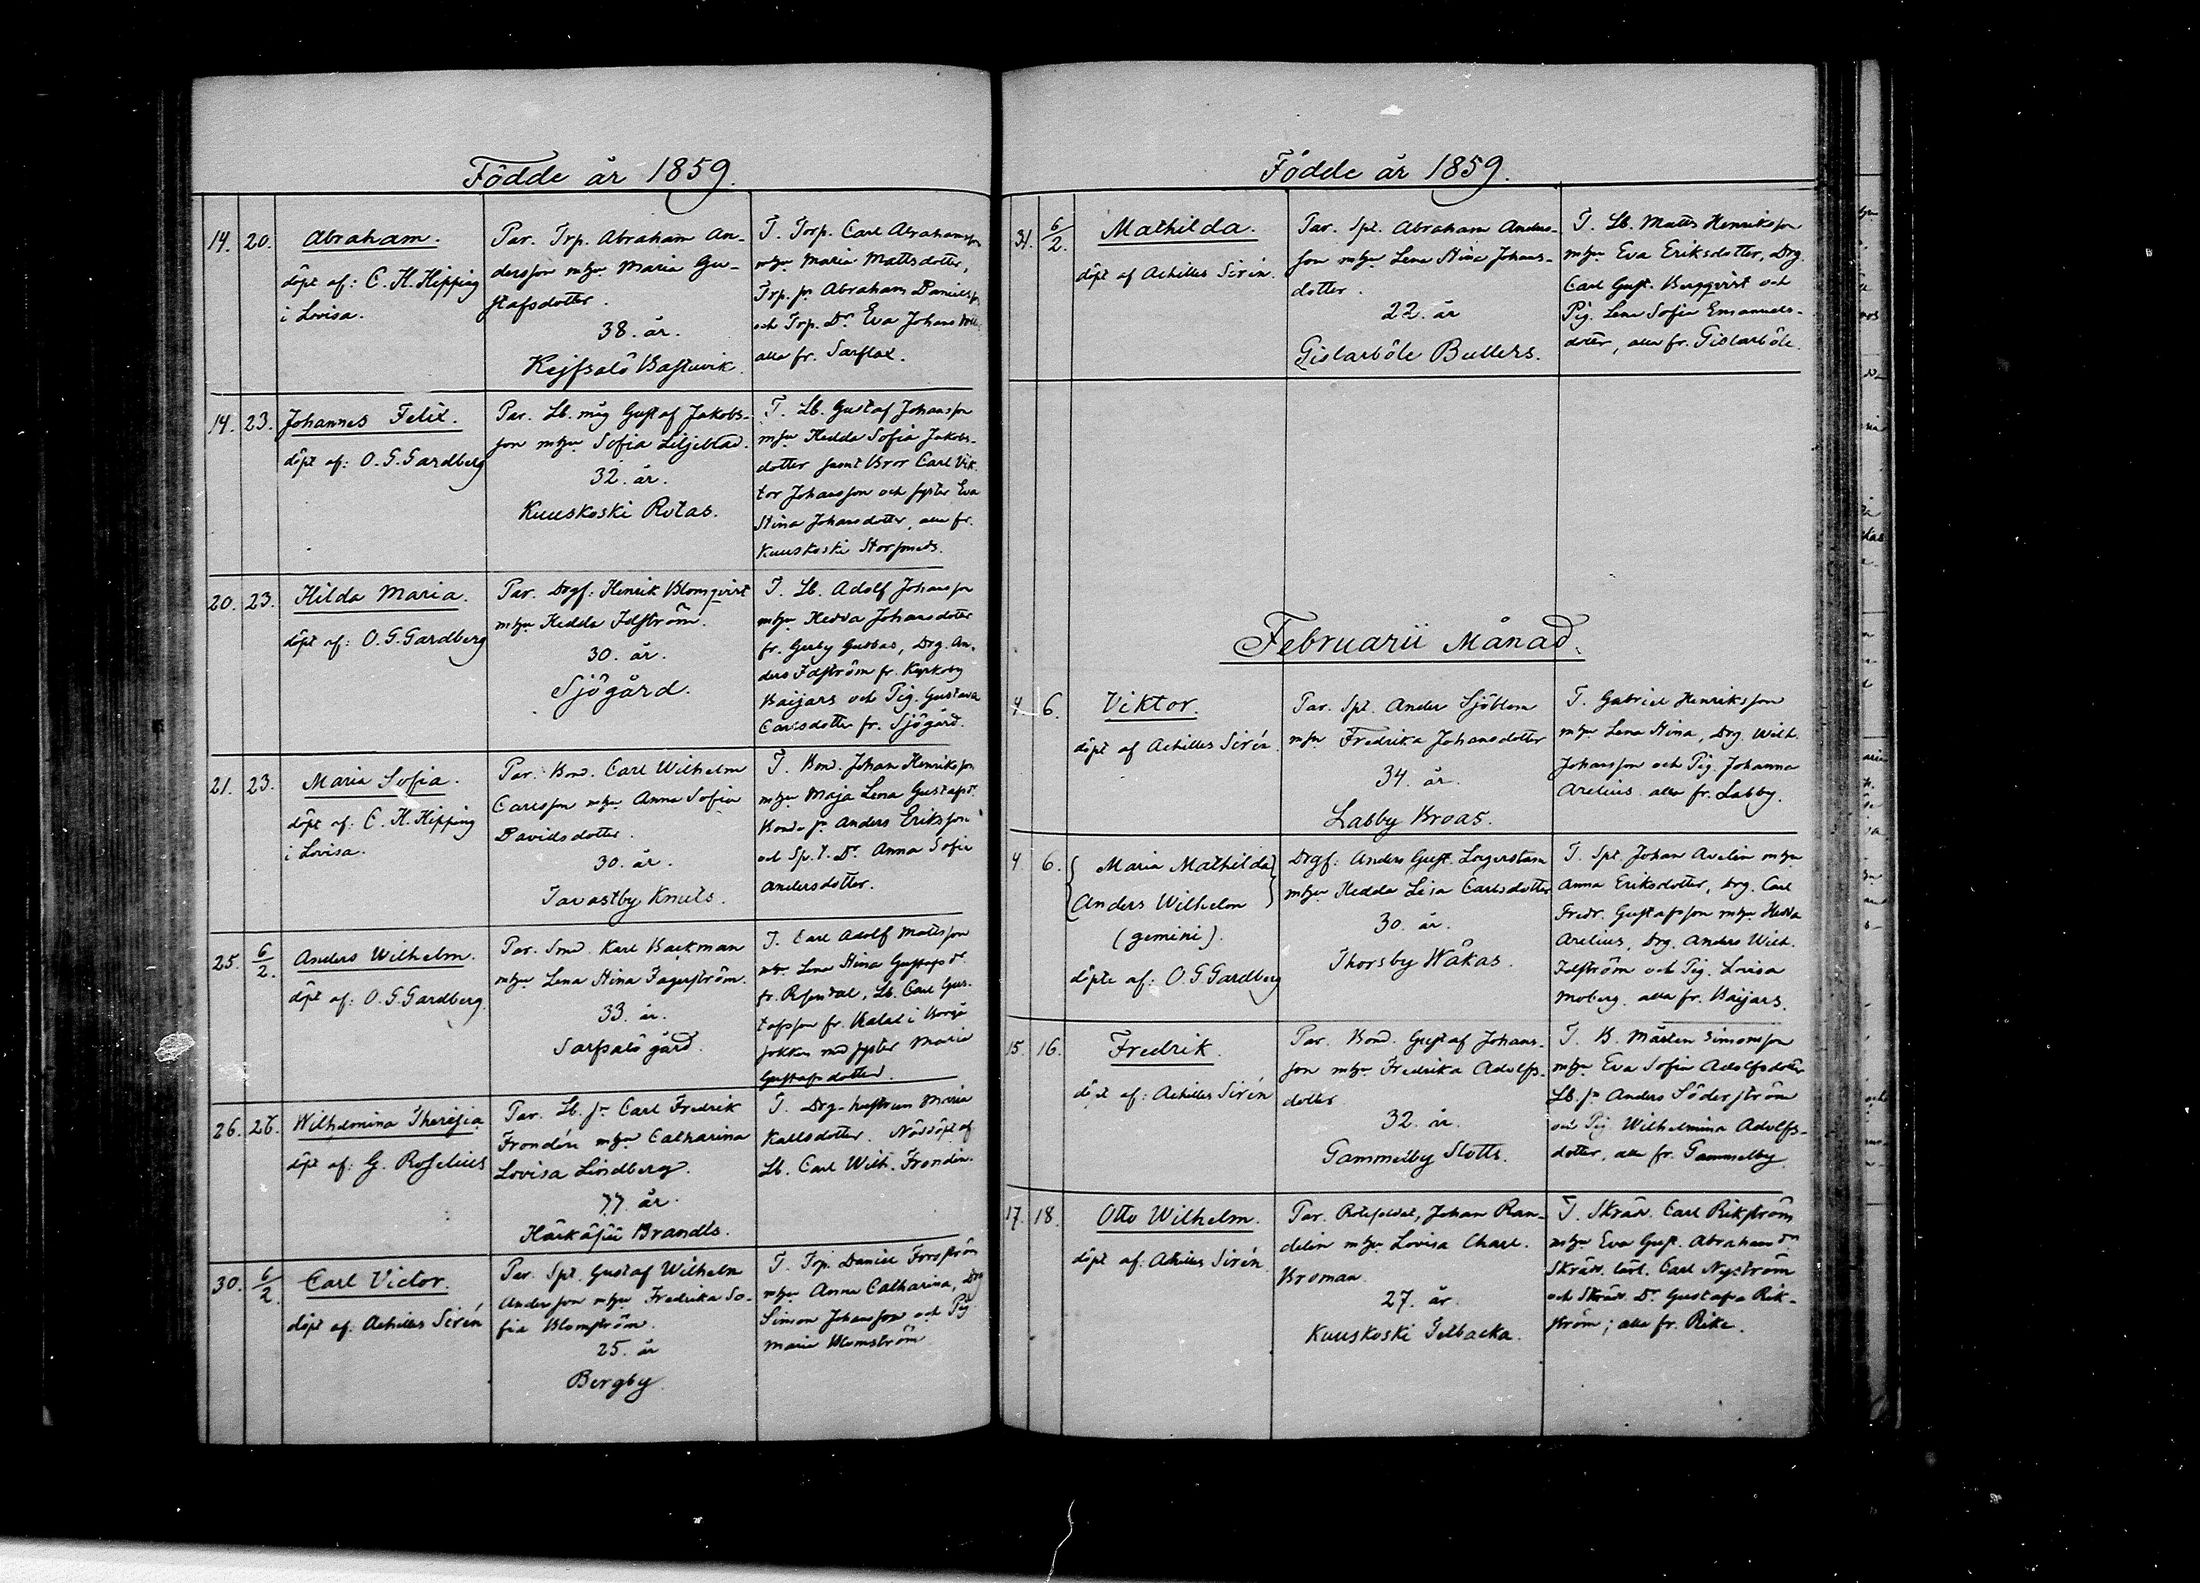 Födde år 1859.
14. 20. Abraham.
döpt af: C. H. Hipping
i Lovisa.
Par. Trp. Abraham An-
dersson mhu Maria Gu-
stafsdotter.
38. år.
Kejfsalö Bastuvik.
T. Torp. Carl Abrahamsson
mhu Maria Mattsdotter,
Trp. sn Abraham Danielsson
och Trp. Dr Eva Johans
alla fr. Sarflax.
14. 23. Johannes Felix.
döpt af: O. G. Gardberg
Par. Lb. måg Gustaf Jakobs-
son mhu Sofia Liljeblad.
32. år.
Kuuskoski Rotas.
T. Lb. Gustaf Johansson
mhu Hedda Sofia Jakobs-
dotter samt Bror Carl Vik-
tor Johansson och syster Eva
Stina Johansdotter, alla fr.
Kuuskoski Storsmeds.
20. 23. Hilda Maria.
döpt af: O. G. Gardberg
Par. Drgf. Henrik Blomqvist
mhu Hedda Idström.
30. år.
Sjögård.
T. Lb. Adolf Johansson
mhu Hedda Johansdotter
fr. Gerby Gubbas, Drg. An-
ders Idström fr. Kyrkoby
Baijars och Pig. Gustava
Carlsdotter fr. Sjögård.
21. 23. Maria Sofia.
döpt af: C. H. Hipping
i Lovisa.
Par. Bond. Carl Wilhelm
Carlsson mhu Anna Sofia
Davidsdotter.
30. år.
Tavastby Knuts.
T. Bond. Johan Henriksson
mhu Maja Lena Gustafsd.
Bond. sn Anders Eriksson
och Sp. t. Dr Anna Sofia
Andersdotter.
25. 6/2. Anders Wilhelm.
döpt af: O. G. Gardberg.
Par. Smd. Karl Backman
mhu Lena Stina Fagerström.
33. år.
Sarfsalö gård.
T. Carl Adolf Mattsson
mhu Lena Stina Gustafsdr
fr. Rosendal, Lb. Carl Gus-
tafsson fr. Kalal i Borgå
sokken med syster Maria
Gustafsdotter.
26. 26. Wilhelmina Theresia
döpt af: G. Roselius
Par. Lb. sn Carl Fredrik
Frondén mhu Catharina
Lovisa Lindberg.
77 år.
Härkäpää Brandts.
T. Drg-hustrun Maria
Kallsdotter. Nöddöpt af
Lb. Carl Wilh. Frondén.
30. 6/2. Carl Victor.
döpt af: Achilles Sirén
Par. Spt. Gustaf Wilhelm
Andersson mhu Fredrika So-
fia Blomström.
25. år
Bergby.
T. Trp. Daniel Forsström
mhu Anna Catharina, Drg
Simon Johansson och Pig
Maria Blomström
Födde år 1859.
31. 6/2. Mathilda.
döpt af Achilles Sirén.
Par. Spt. Abraham Anders-
son mhu Lena Stina Johans-
dotter.
22. år
Gislarböle Bullers.
T. Lb. Matts Henriksson
mhu Eva Eriksdotter, Drg.
Carl Gust. Bergqvist och
Pig. Lena Sofia Emanuels-
dotter, alla fr. Gislarböle.
Februarii Månad.
4. 6. Viktor.
döpt af Achilles Sirén.
Par. Spt. Ander Sjöblom
mhu Fredrika Johansdotter
34. år.
Labby Broas.
T. Gabriel Henriksson
mhu Lena Stina, Drg. Wilh.
Johansson och Pig. Johanna
Arelius. alla fr. Labby.
4. 6. Maria Mathilda
Anders Wilhelm
(gemini).
döpte af: O. G. Gardberg
Drgf: Anders Gust. Lagerstam
mhu Hedda Lisa Carlsdotter
30. år.
Thorsby Wåkas.
T. Spt. Johan Avelin mhu
Anna Eriksdotter, Drg. Carl
Fredr. Gustafsson mhu Hedda
Arelius, Drg. Anders Wilh.
Idström och Pig. Lovisa
Moberg. alla fr. Baijars.
15. 16. Fredrik.
döpt af: Achilles Sirén
Par. Bond. Gustaf Johans-
son mhu Fredrika Adolfs-
dotter
32. år.
Gammelby Slotts.
T. B. Mårten Simonsson
mhu Eva Sofia Adolfsdotter
Lb. sn Anders Söderström
och Pig. Wilhelmina Adolfs-
dotter, alla fr. Gammelby
17. 18. Otto Wilhelm.
döpt af: Achilles Sirén
Par. Johan Ran-
delin mhu Lovisa Charl.
Broman
27. år.
Kuuskoski Tetbacka.
T. Skräd. Carl Rikström
mhu Eva Gust. Abrahamdr
Skräd. lärl. Carl Nyström
och Skräd. Dr Gustafa Rik-
ström; alla fr. Rike.